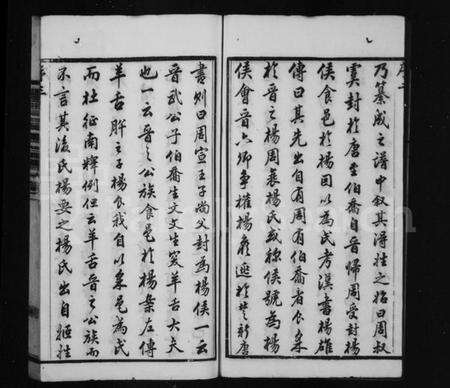 序二
乃纂成之譜中叙其得姓之始曰周叔
虞封於唐至伯喬自晉歸周受封楊
侯食邑於楊因以為氏考漢書楊雄
傳曰其先出自有周有伯喬者食采
於晉之楊周衰楊氏或稱侯號為楊
侯會晉六卿爭權楊侯逃於楚新唐
書則曰周宣王子尚父封為楊侯一云
晉武公子伯喬生文文生突羊舌大夫
也一云晉之公族食邑於楊案左傳
羊舌肸之子楊食我自以采邑為氏
而杜征南釋例但云羊舌晉之公族而
不言其後氏楊要之楊氏出自姬姓